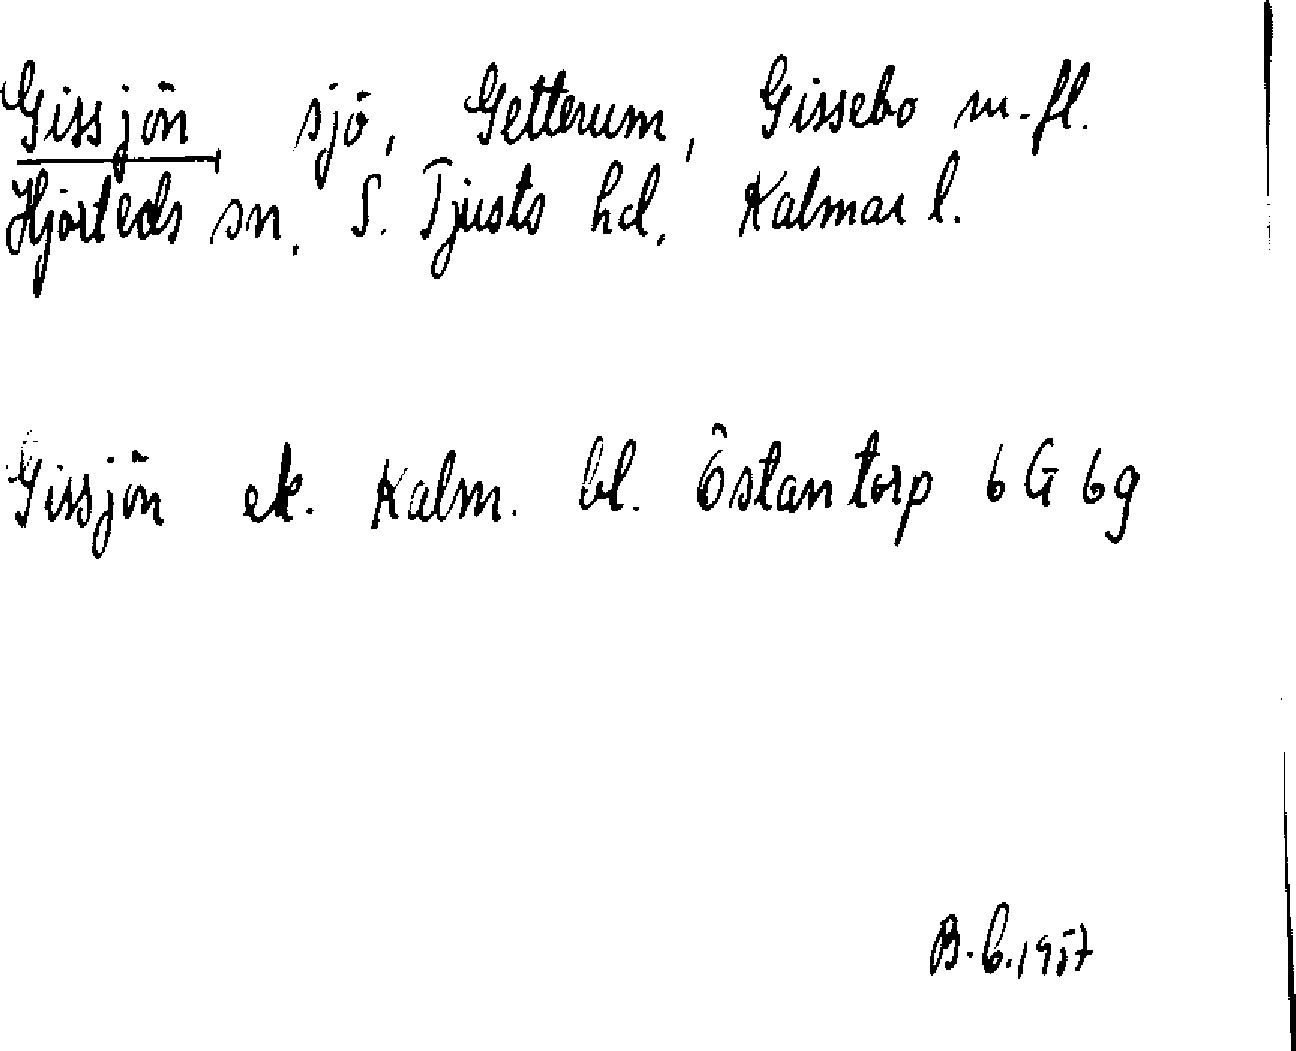 Gissjön sjö, Getterum, Gissebo m.fl.
Hjorteds sn. S. Tjusts hd, Kalmar l.
Gissjön ek. Kalm. bl. Östantorp 6G 6g
B.b.1957